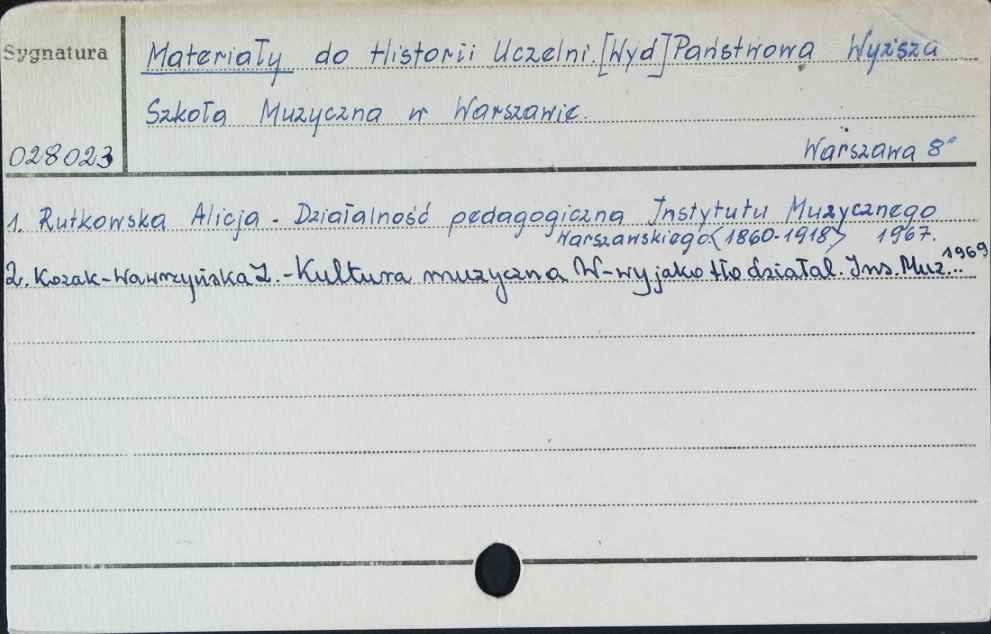 Sygnatura
Materiały do Historii Uczelni. [Wyd] Państwowa Wyższa
Szkoła Muzyczna w Warszawie.
028023
Warszawa 8°
1. Rutkowska Alicja - Działalność pedagogiczna Instytutu Muzycznego
Warszawskiego <1860-1918> 1967.
2. Kozak-Wawrzyńska Z. - Kultura muzyczna W-wy jako tło działal. Ins. Muz... 1969